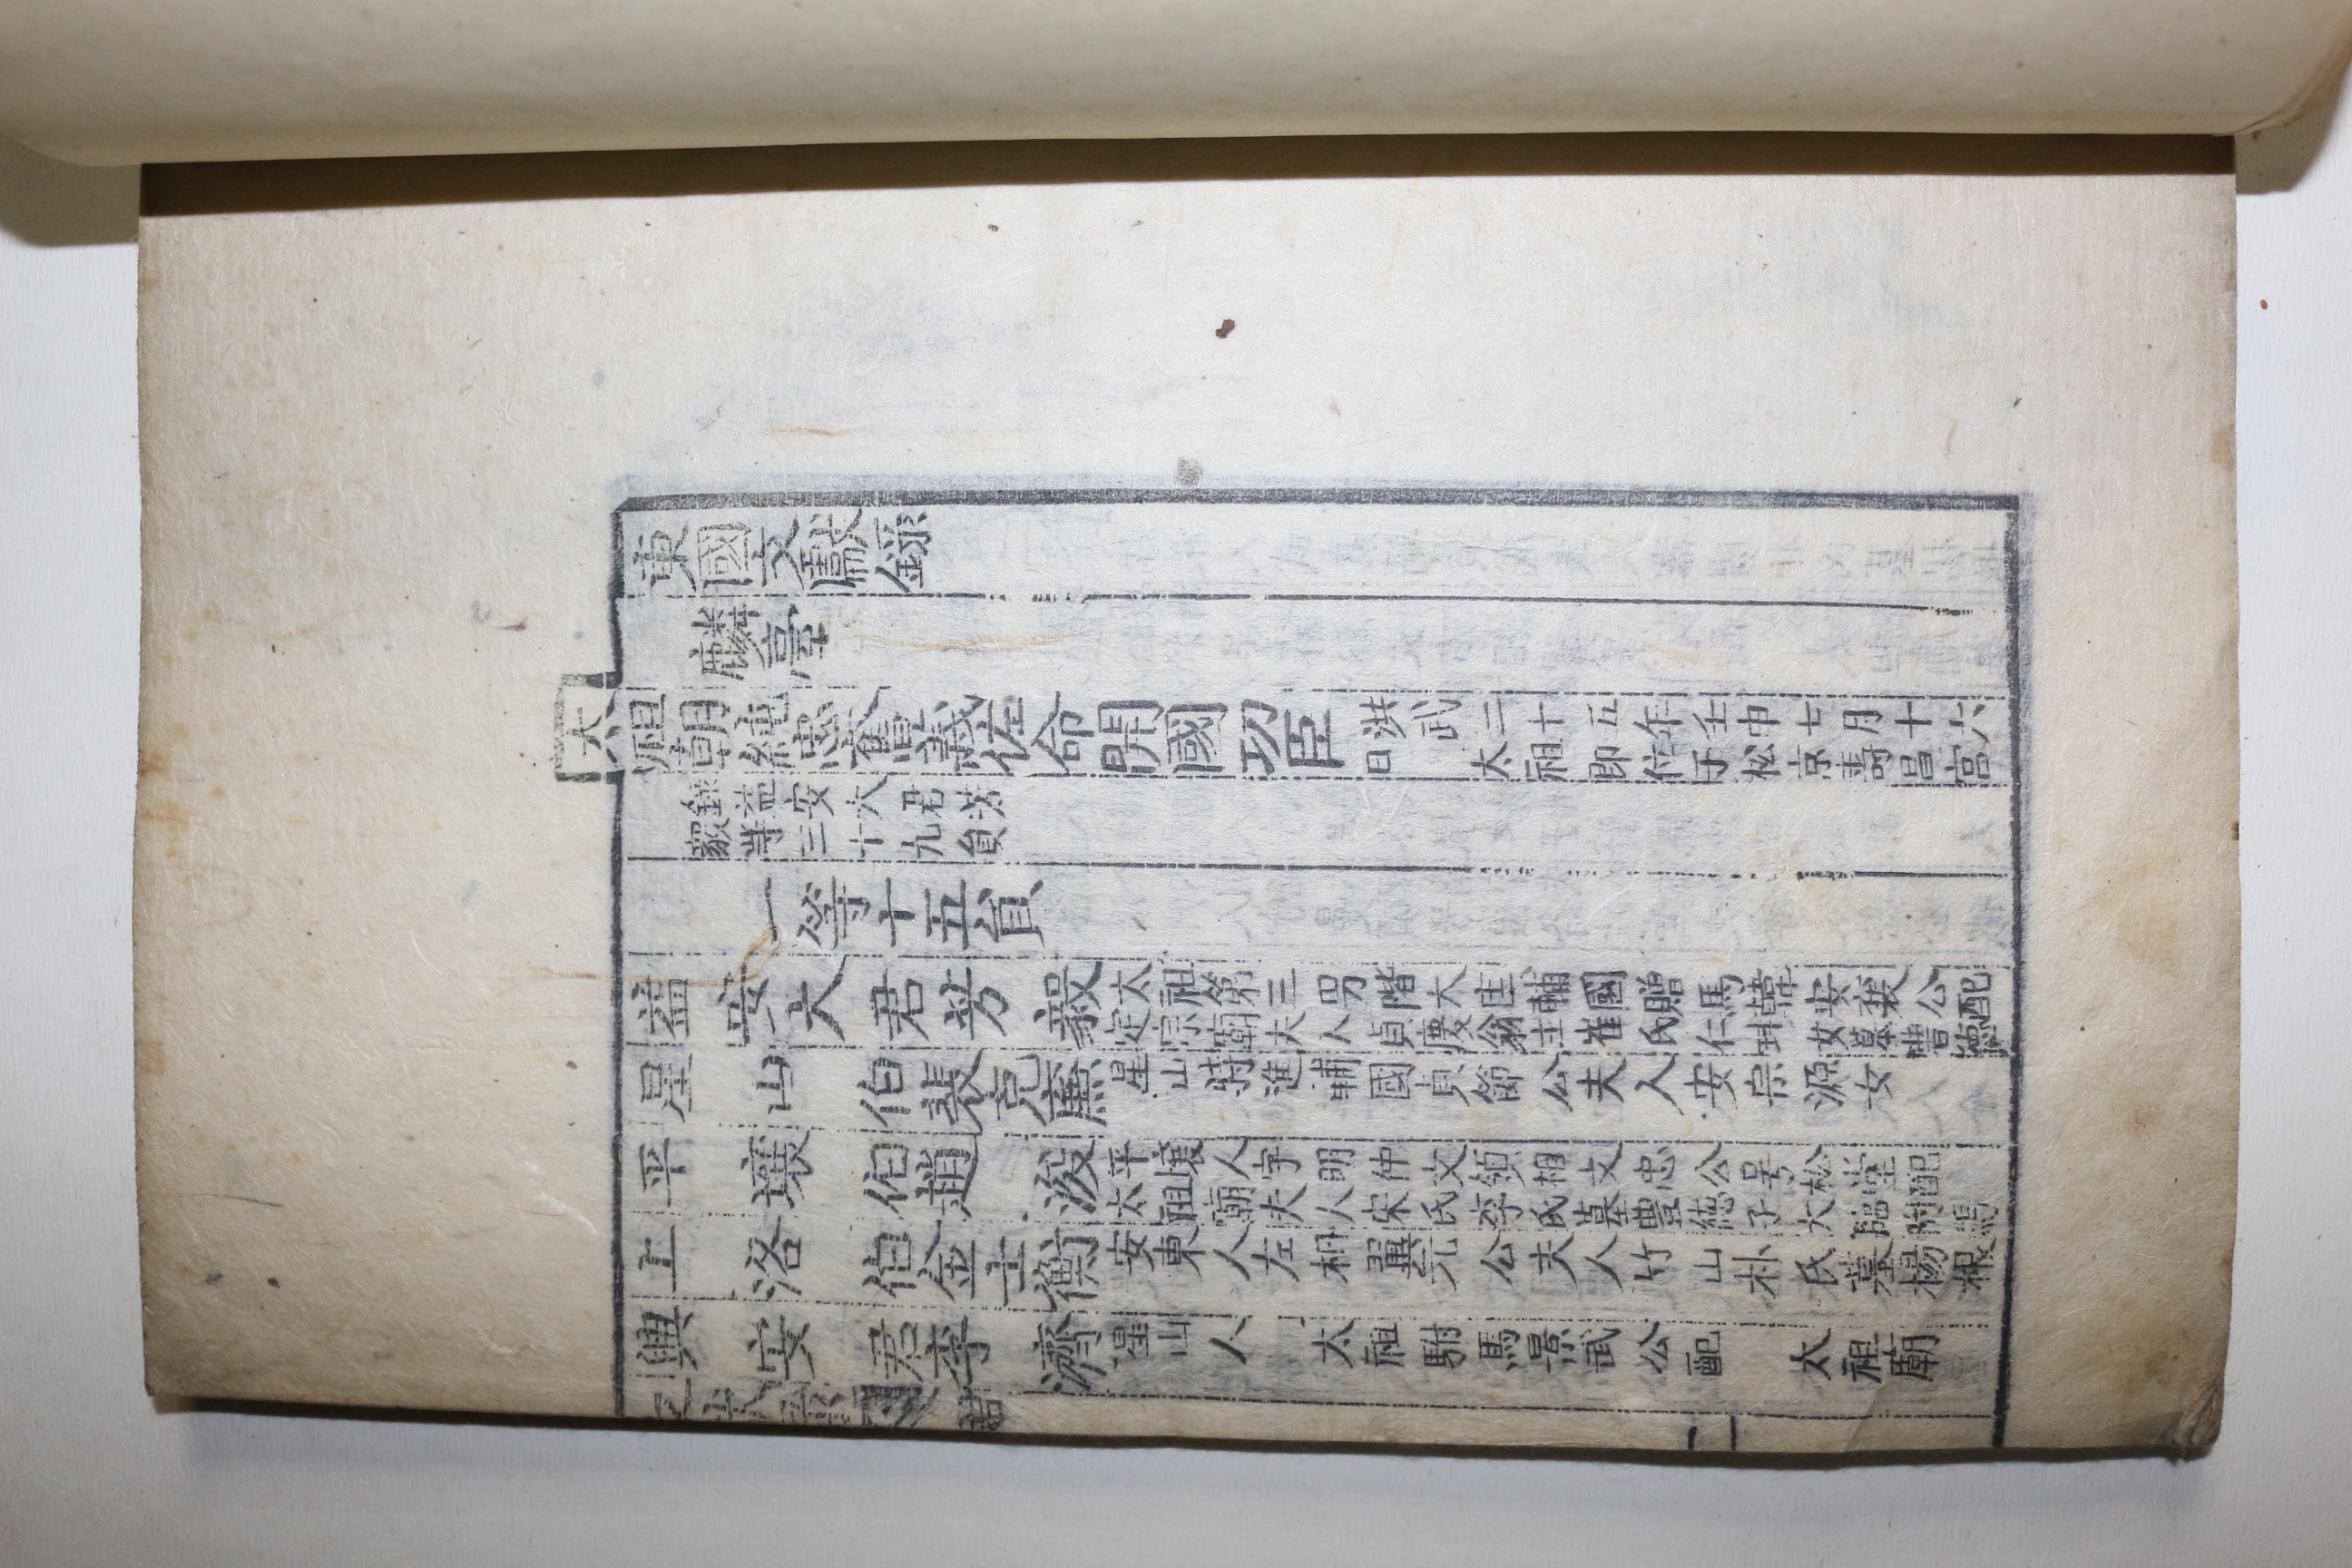 東國文獻錄
麟臺
太祖朝純忠奮義佐命開國功臣
洪武二十五年壬申七月十六
日 太祖即位于松京壽昌宮
錄益安大君芳
毅等三十九員
一等十五員
益安大君芳毅
太祖第三男階大匡輔國贈馬韓安襄公配
定宗廟夫人貞慶翁主崔氏仁㺶女墓豊德
星山伯裴克廉
星山特進輔國貞節公夫人安宗源女
平壤伯趙浚
平壤人字明仲文領相文忠公号松堂配
太祖廟夫人宋氏李氏墓豊德子大臨附馬
上洛伯金士衡
安東人左相翼元公夫人竹山朴氏墓楊根
興安君李濟
星山人 太祖駙馬景武公配 太祖廟
二